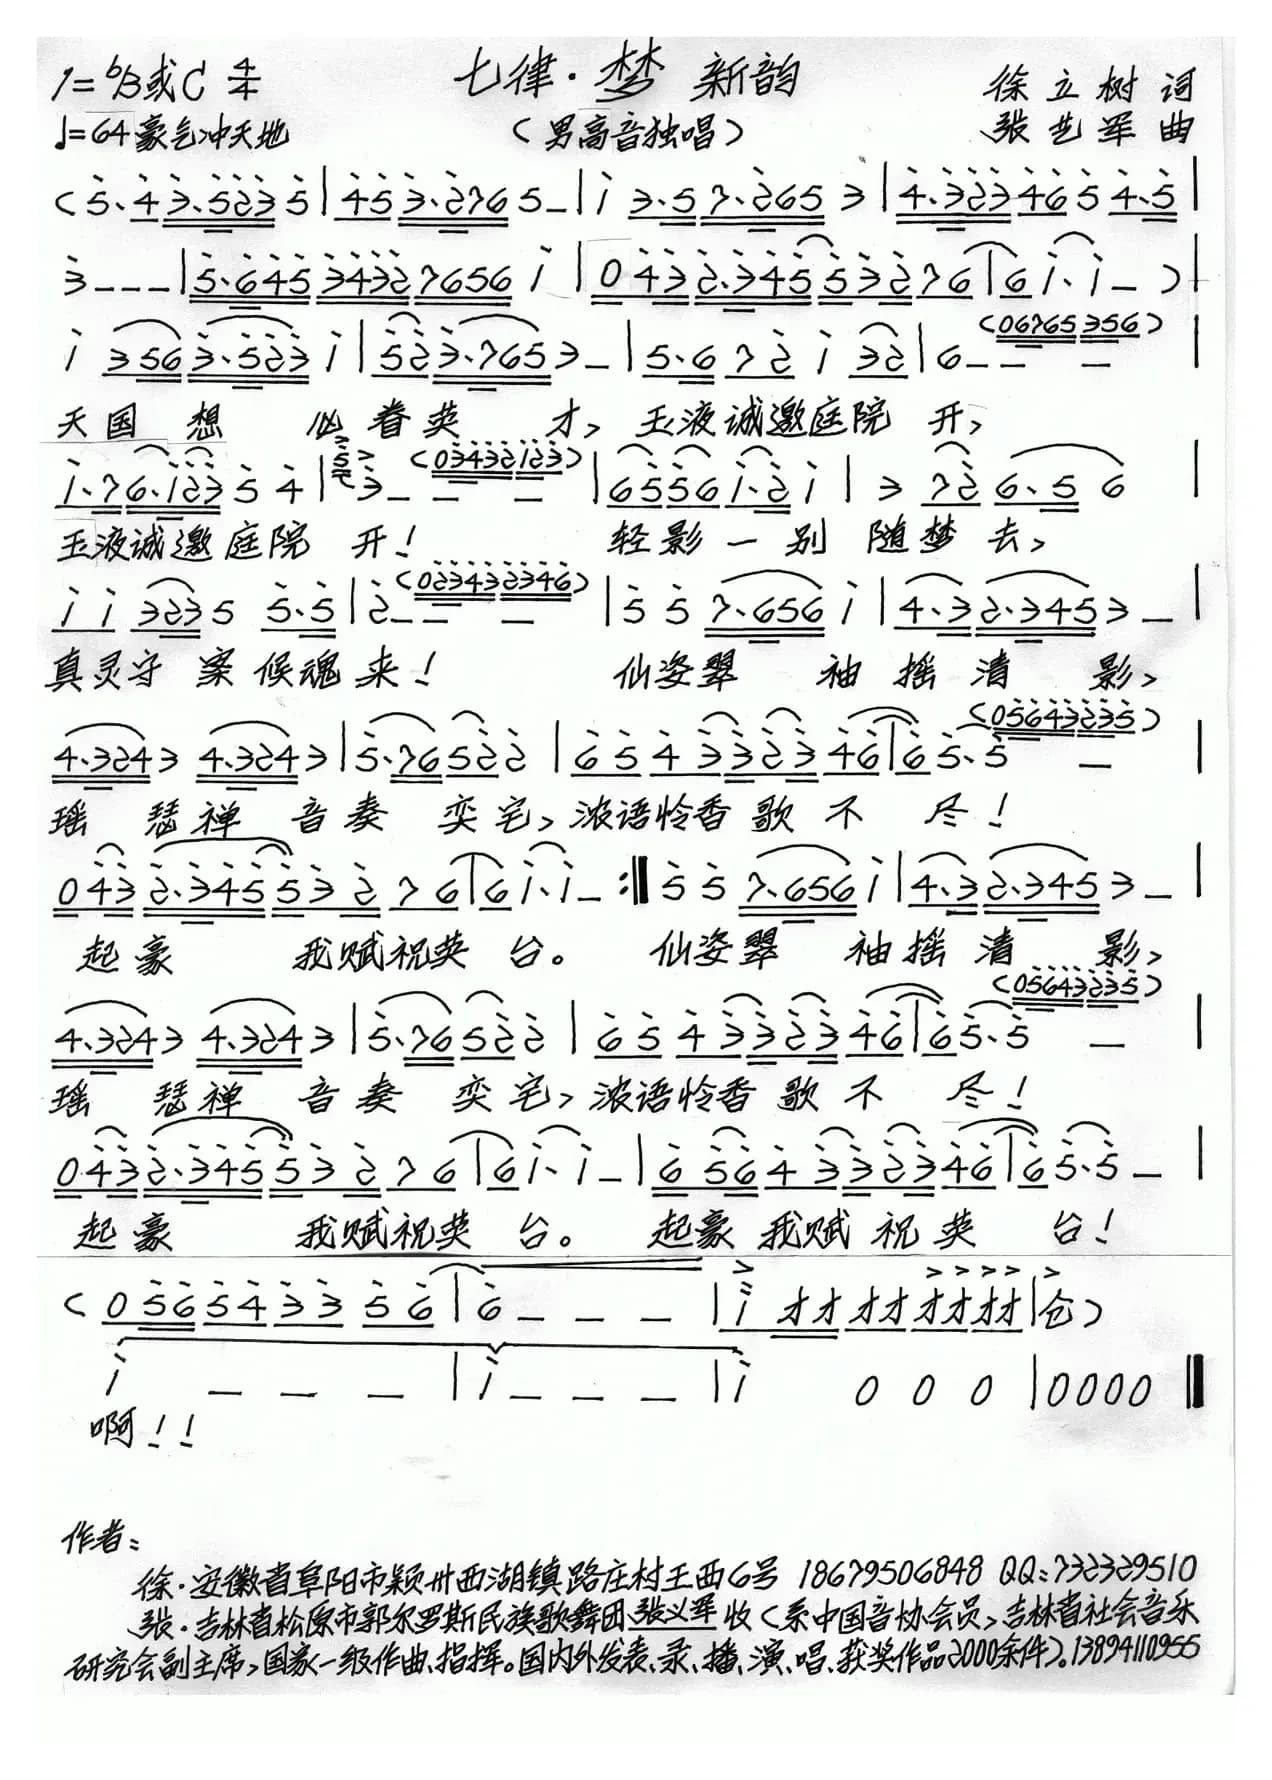 1=ᵇB或C 4/4 七律·梦 新韵 徐立树 词
♩=64 豪气冲天地 (男高音独唱) 张艺军 曲
(5·43·5235|453·2765-|i 3·57·2653|4·3234654·5|
3---|5·645343276561|0432·34553276|6i·i-)|
(06765356)
i3563·523i|523·7653-|5·672i32|6---|
天国想 必眷英 才, 玉液诚邀庭院 开,
(03432123)
i·76·12354|3---|6556i·2i|3726·56|
玉液诚邀庭院 开! 轻影一别 随梦去,
(023432346)
ii32355·5|2---|557·656i|4·32·3453-|
真灵守 案候魂来! 仙姿翠 袖摇清 影,
(05643235)
4·32434·3243|5·76522|654332346|65·5-|
瑶 瑟禅 音奏 奕宅, 浓语怜香歌不 尽!
0432·345532 76|6i·i-:‖557·656i|4·32·3453-|
起豪 我赋祝英 台。 仙姿翠 袖摇清 影,
(05643235)
4·32434·3243|5·76522|654332346|65·5-|
瑶 瑟禅 音奏 奕宅, 浓语怜香歌不 尽!
0432·345532 76|6i·i-|65643323 46|65·5-|
起豪 我赋祝英 台。 起豪我赋祝英 台!
(056543356|6---|i才才才才才才才才|仓)
i---|i---|i000|0000‖
啊!!
作者:
徐·安徽省阜阳市颍州西湖镇路庄村王西6号 18679506848 QQ:732329510
张·吉林省松原市郭尔罗斯民族歌舞团张义军收(系中国音协会员,吉林省社会音乐
研究会副主席,国家一级作曲、指挥。国内外发表、录、播、演、唱、获奖作品2000余件)。13894110955